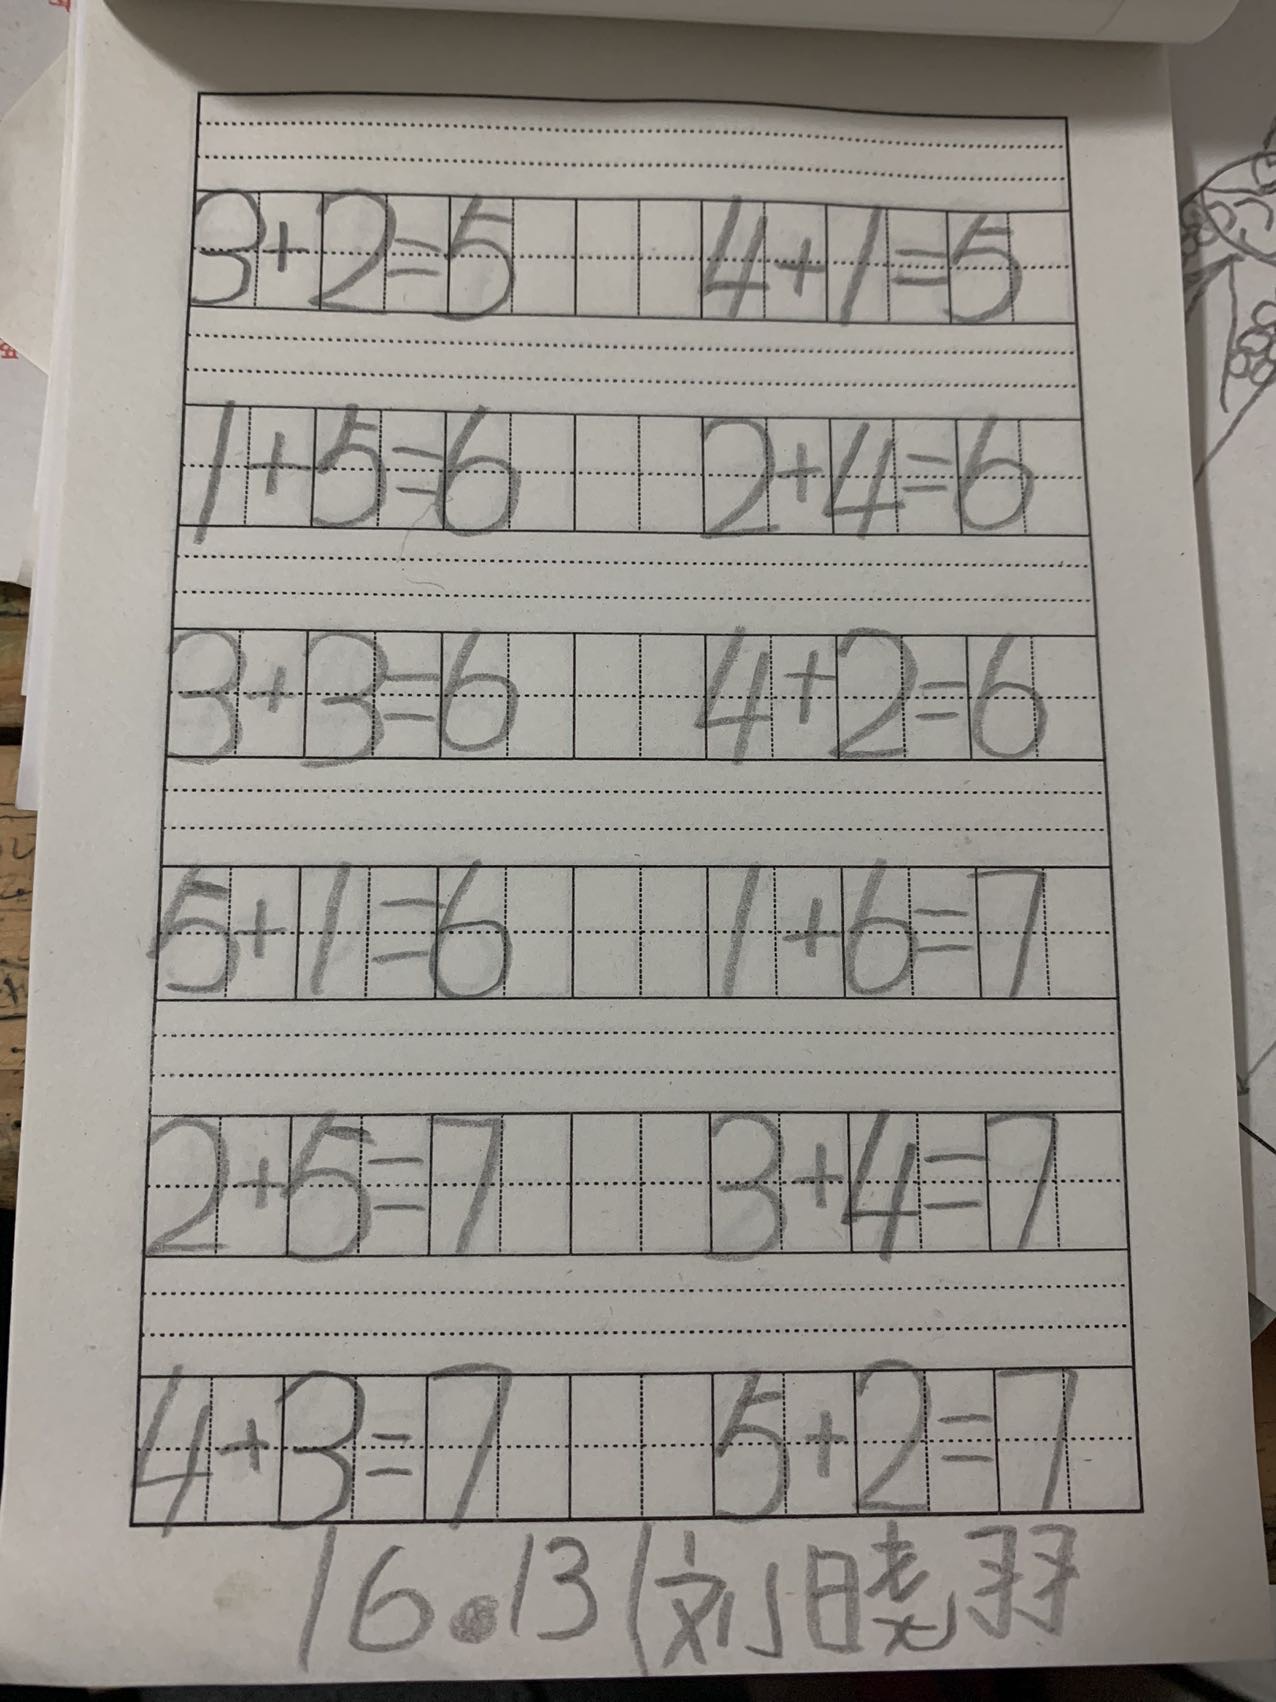 3+2=5 4+1=5
1+5=6 2+4=6
3+3=6 4+2=6
5+1=6 1+6=7
2+5=7 3+4=7
4+3=7 5+2=7
16.13 刘晓羽